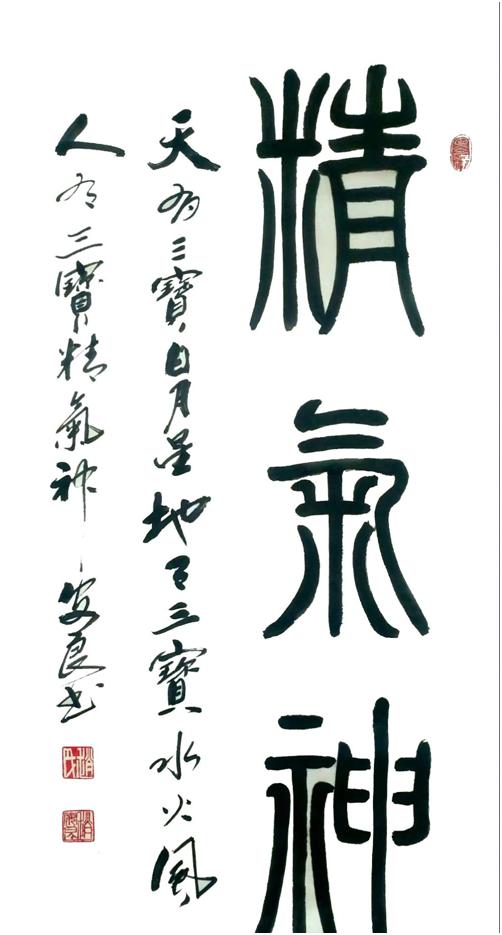 精氣神
天有三寶日月星地有三寶水火風
人有三寶精氣神
安良书